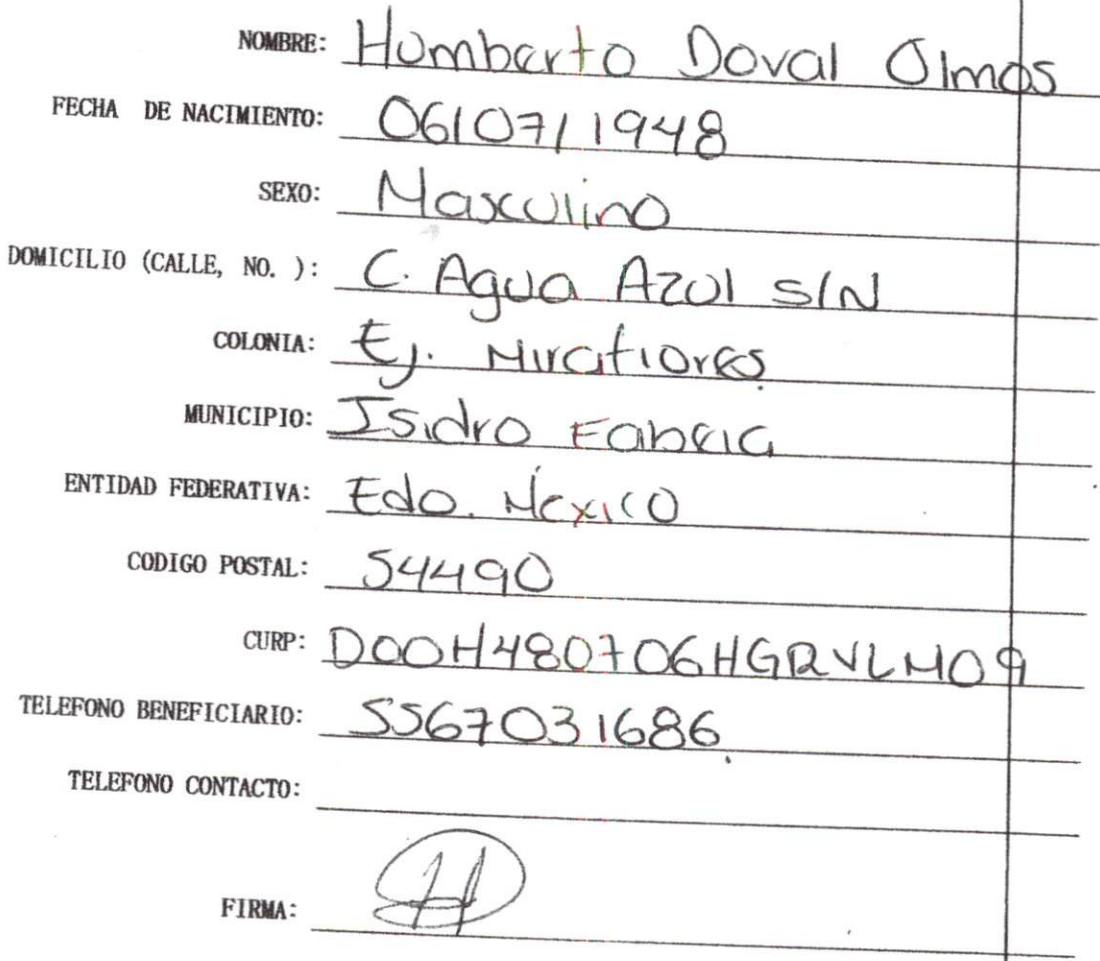 NOMBRE: Humberto Doval Olmos
FECHA DE NACIMIENTO: 06/07/1948
SEXO: Masculino
DOMICILIO (CALLE, NO. ): C. Agua Azul S/N
COLONIA: Ej. Miraflores
MUNICIPIO: Isidro Fabela
ENTIDAD FEDERATIVA: Edo. México
CODIGO POSTAL: 54490
CURP: DOOH480706HGRVLM09
TELEFONO BENEFICIARIO: 5567031686
TELEFONO CONTACTO:
FIRMA: